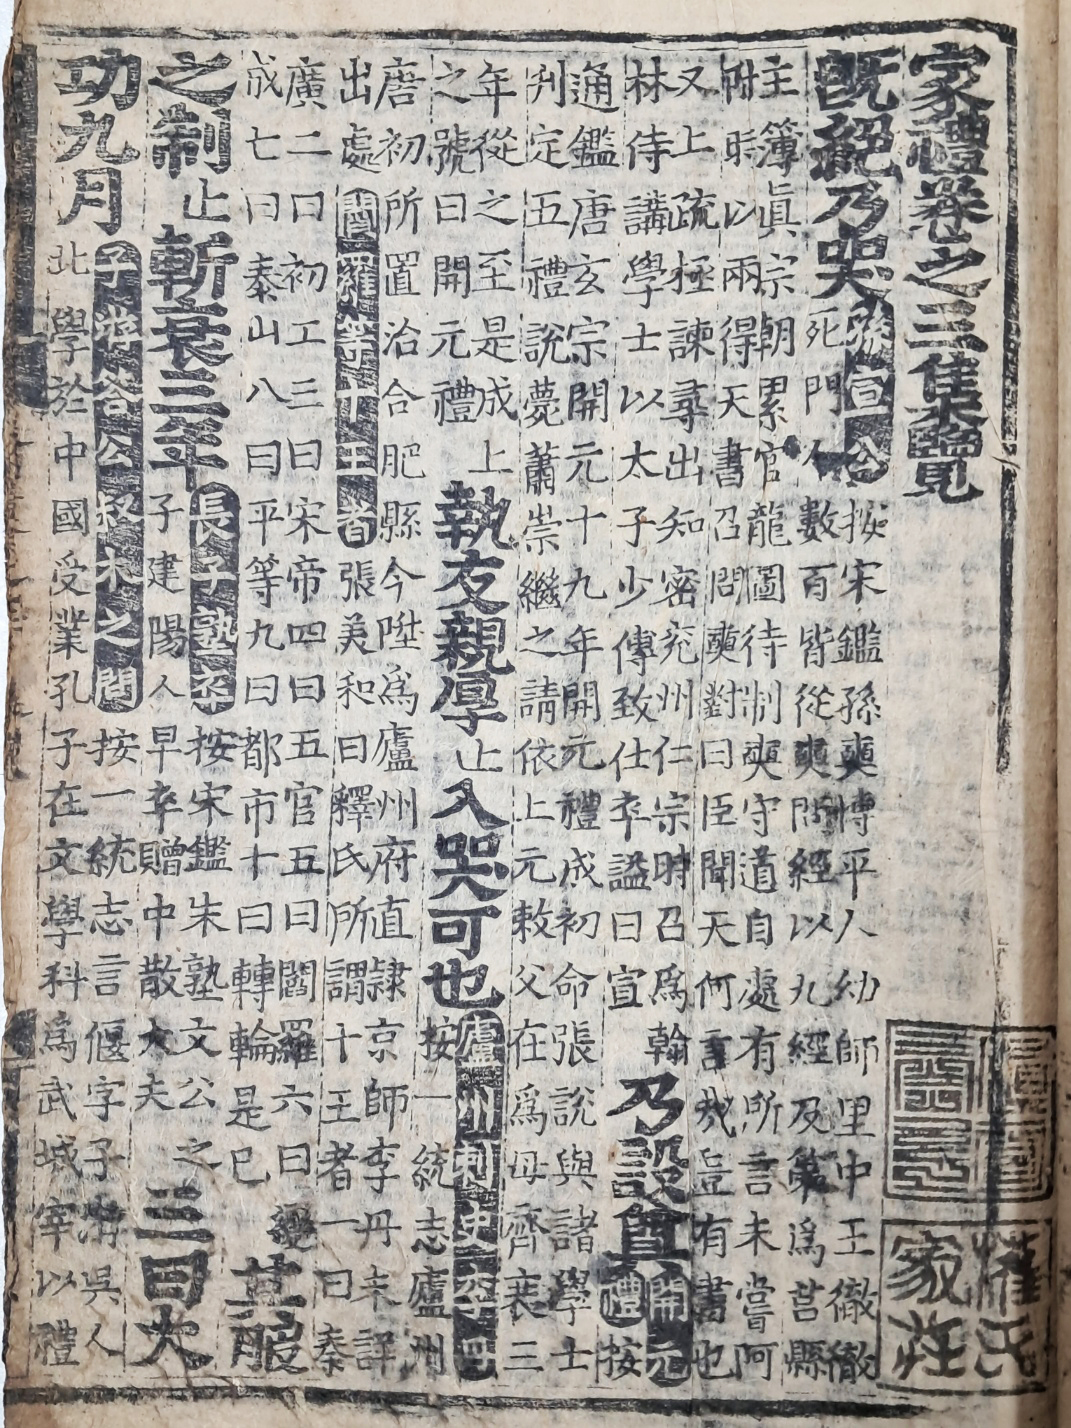 家禮卷之三集覽
旣絕乃哭
孫宣公按宋鑑孫奭博平人幼師里中王徹徹
死門人數百皆從奭問經以九經及第爲莒縣
主簿眞宗朝累官龍圖待制奭守道自處有所言未嘗阿
附眡以兩得天書召問奭對曰臣聞天何言哉豈有書也
又上疏極諫尋出知密兗州仁宗時召爲翰
林侍講學士以太子少傅致仕卒謚曰宣
乃設奠
開元
禮按
通鑑唐玄宗開元十九年開元禮成初命張說與諸學士
刋定五禮說薨蕭崇繼之請依上元敕父在爲母齊衰三
年從之至是成上
之號曰開元禮
執友親厚止入哭可也
廬州刺史
按一統志廬州
唐初所置治合肥縣今陞爲廬州府直隷京師李丹未詳
出處閻羅等十王者張美和曰釋氏所謂十王者一曰秦
廣二曰初工三曰宋帝四曰五官五曰閻羅六曰變
成七曰泰山八曰平等九曰都市十曰轉輪是已
其服
之制止斬衰三年
長子塾卒按宋鑑朱塾文公之
子建陽人早卒贈中散大夫
三曰大
功九月
子游答公叔木之問按一統志言偃字子游吳人
北學於中國受業孔子在文學科爲武城宰以禮
崔氏
家莊